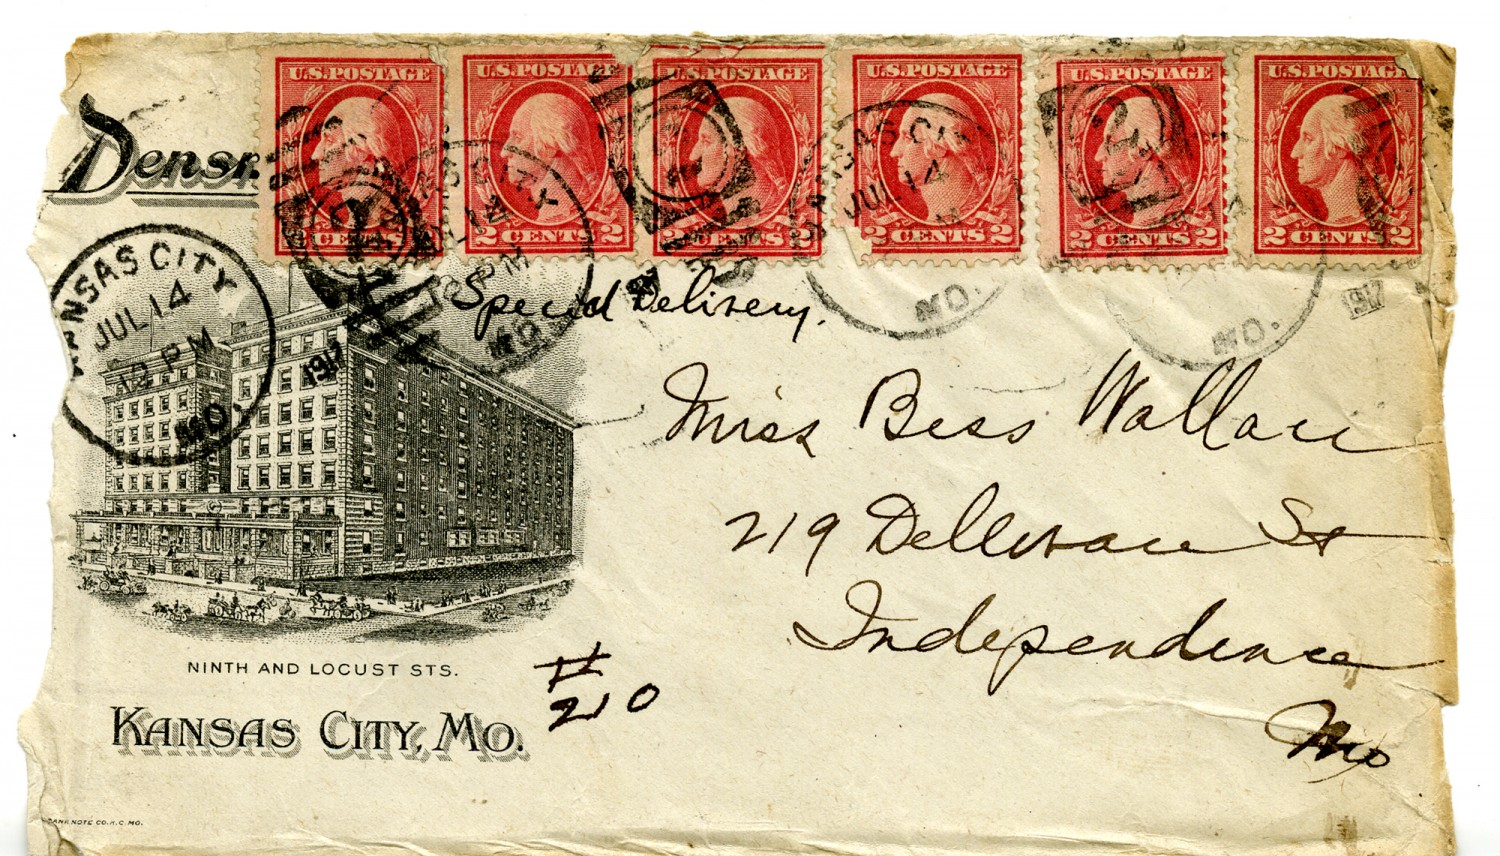 U.S. POSTAGE U.S. POSTAGE U.S. POSTAGE U.S. POSTAGE U.S. POSTAGE U.S. POSTA
2 CENTS 2 2 CENTS 2 CENTS 2 CENTS 2 2 CENTS 2 2 CENTS 2
Densm
KANSAS CITY
JUL 14
12 PM
MO.
1917
KANSAS CITY
JUL 14
12 PM
MO.
KANSAS CITY
JUL 14
M
MO.
MO.
1917
Special Delivery.
Miss Bess Wallace
219 Delleware St
Independence
Mo
NINTH AND LOCUST STS.
KANSAS CITY, MO.
#
210
BANK NOTE CO. K.C. MO.